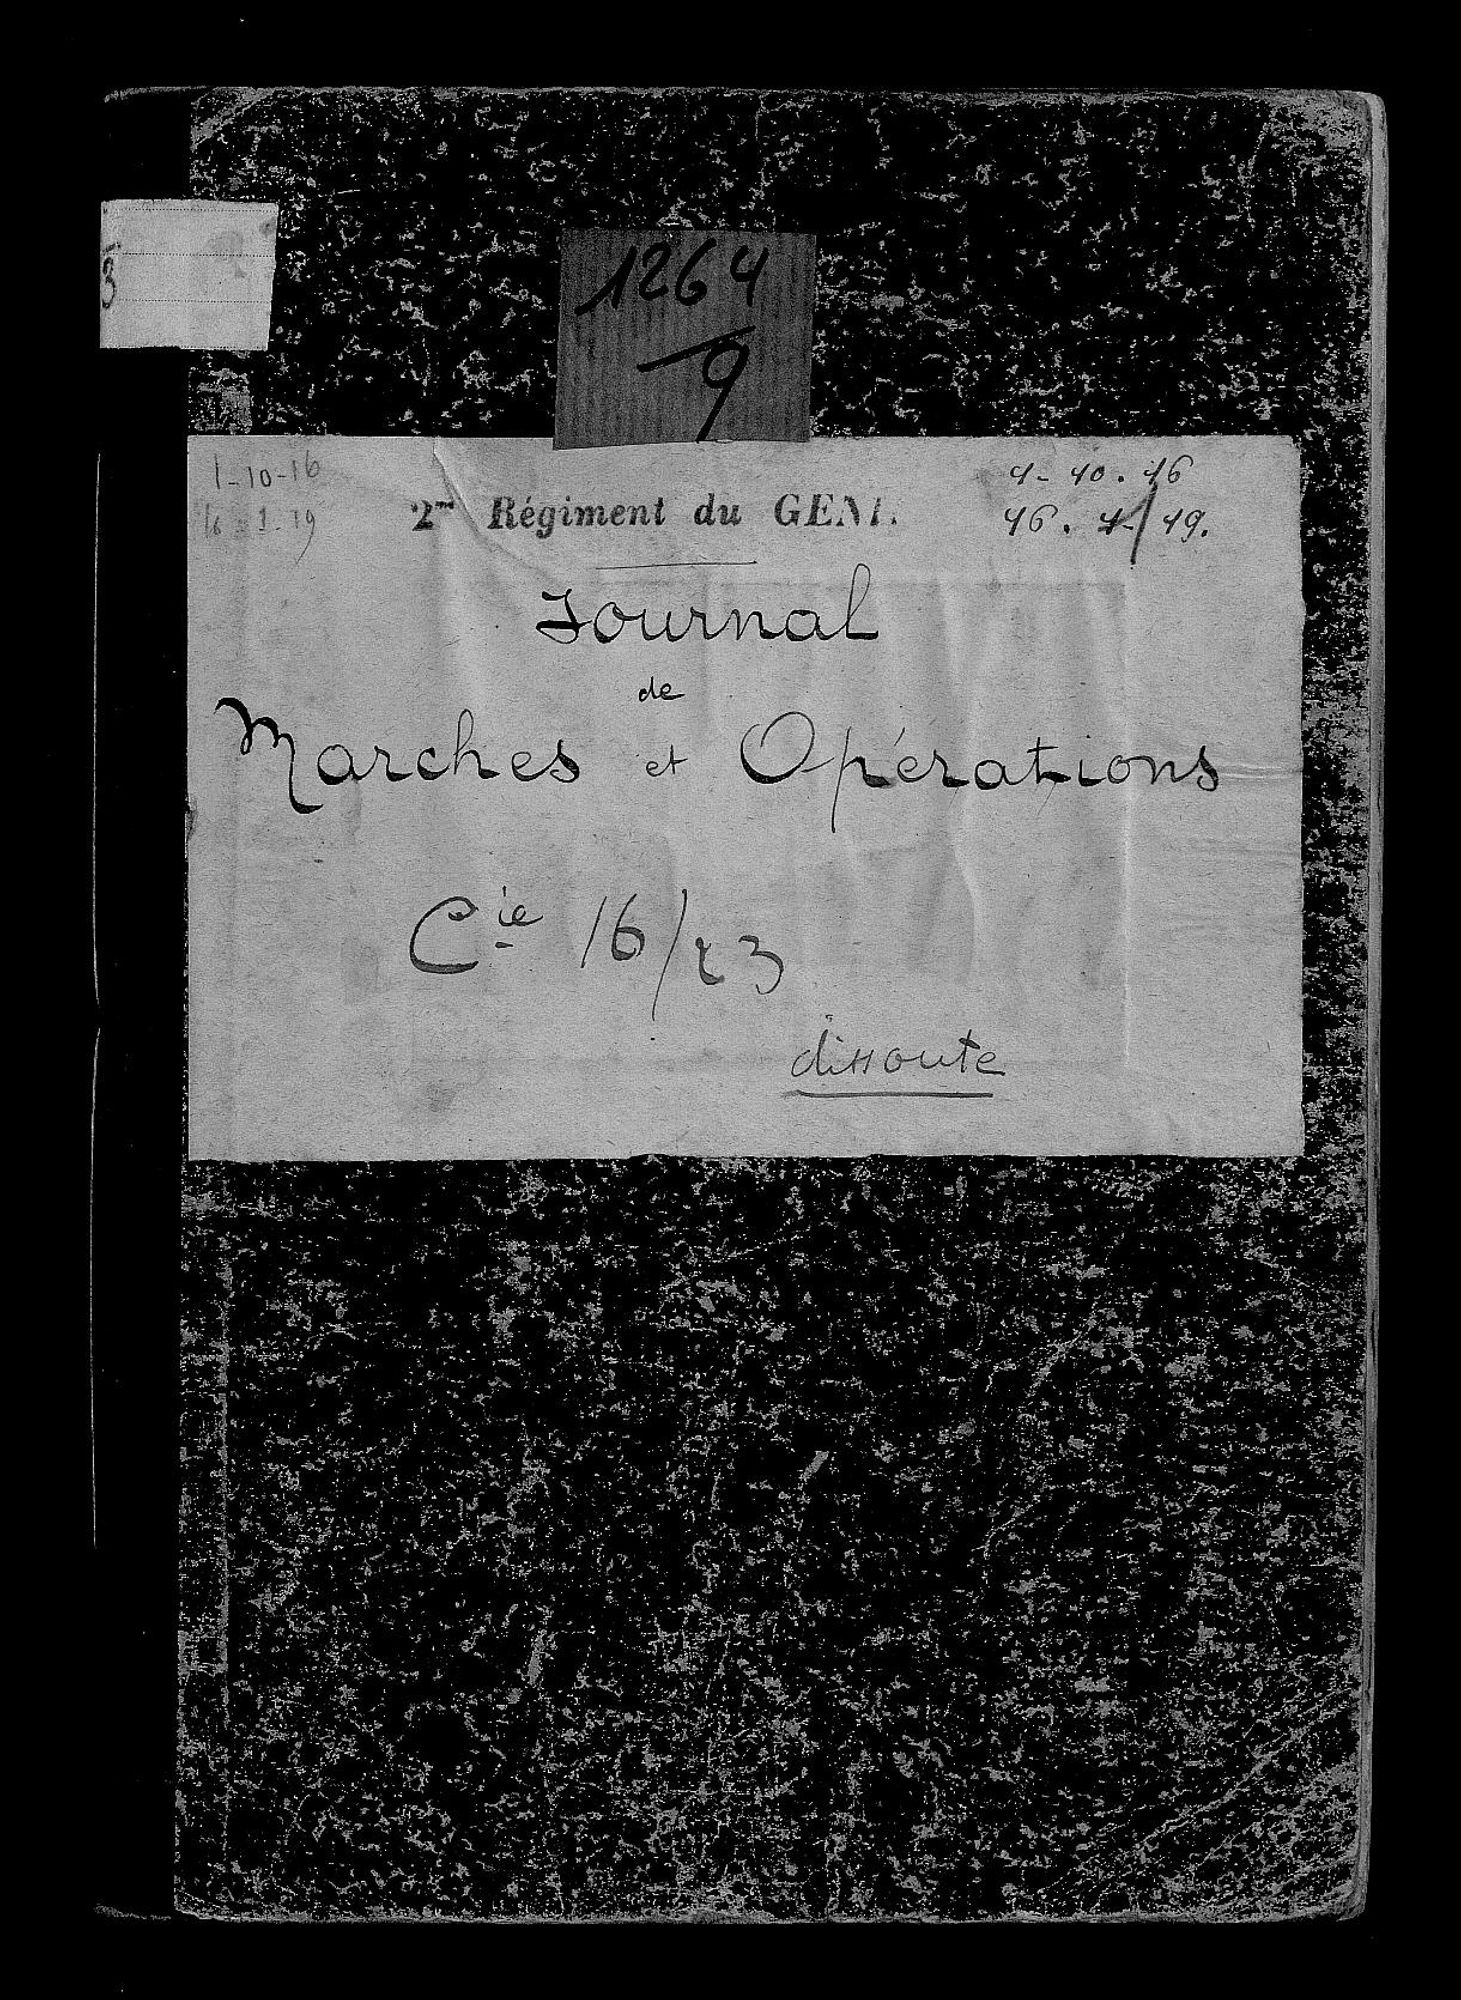 3
1264
9
1-10-16
16-1-19
1-10.16
16.1-19.
2me Régiment du GENIE
Journal
de
Marches et Opérations
Cie 16/23
dissoute